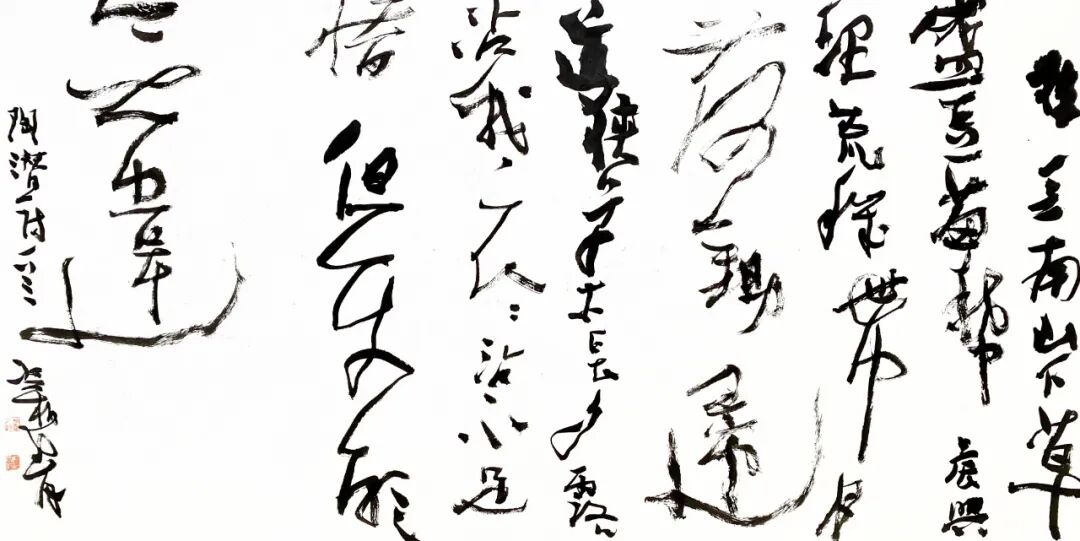 種豆南山下草
盛豆苗稀晨興
理荒穢帶月
荷鋤歸
道狹草木長夕露
沾我衣〻沾不足
惜但使願
無違
陶潛詩